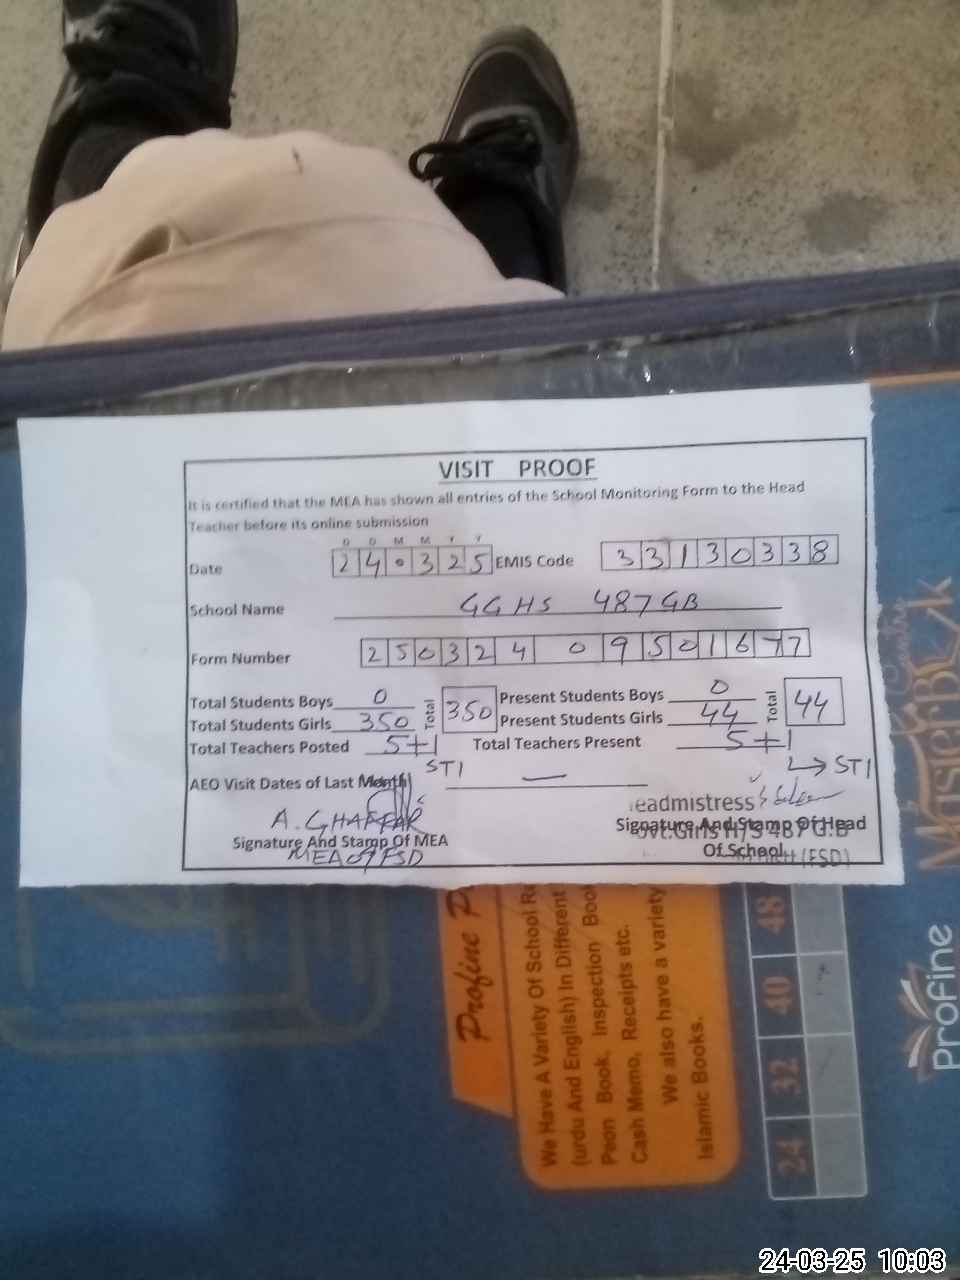 VISIT PROOF
It is certified that the MEA has shown all entries of the School Monitoring Form to the Head
Teacher before its online submission
D D M M Y Y
Date 240325 EMIS Code 33130338
School Name GGHS 487 GB
Form Number 250324 09501677
Total Students Boys 0 Total 350 Present Students Boys 0 Total 44
Total Students Girls 350 Present Students Girls 44
Total Teachers Posted 5+1 Total Teachers Present 5+1
STI → STI
AEO Visit Dates of Last Month —
A. GHAFFAR
Signature And Stamp Of MEA
MEA 07 FSD
eadmistress
Signature And Stamp Of Head
ovt.Girls H/S 487 G.B
Of School
(FSD)
Profine
We Have A Variety Of School Re
(urdu And English) In Different
Peon Book, Inspection Boo
Cash Memo, Receipts etc.
We also have a variety
Islamic Books.
24 32 40 48
Profine
24-03-25 10:03